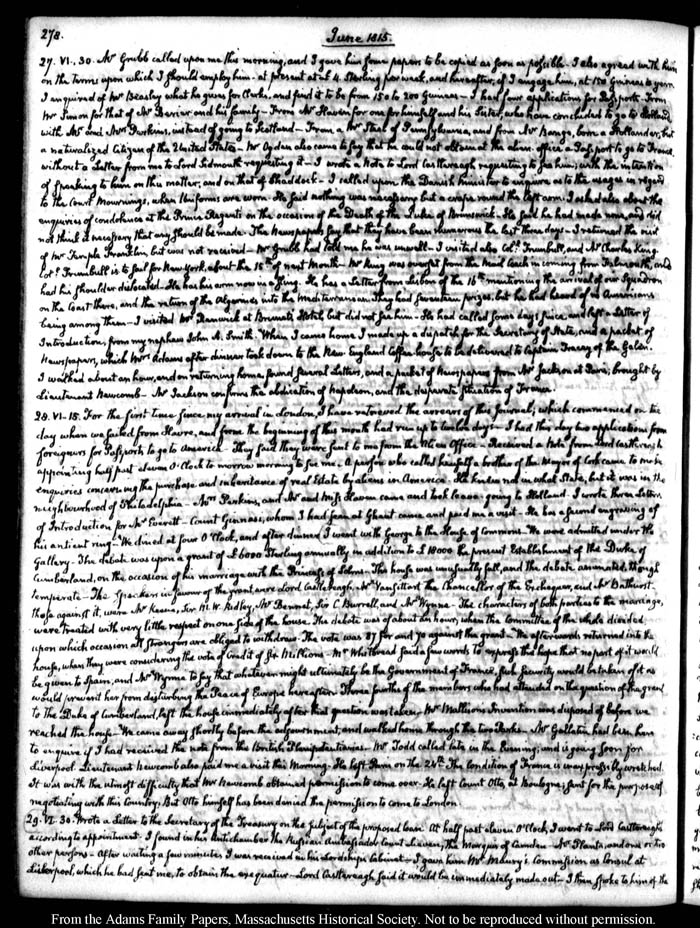 278.
June 1815.
27. VI.30. Mr Grubb called upon me this morning, and I gave him some papers to be copied as soon as possible. I also agreed with him
on the terms upon which I should employ him - at present at £ 4 Sterling per week, and hereafter, if I engage him, at 150 Guineas a year.
I enquired of Mr Beasley what he gives for Clerks, and find it to be from 150 to 200 Guineas - I had four applications for Passports - From
Mr Simon for that of Mr Berrier and his family - From Mr Haven for one for himself and his Sister, who have concluded to go to Holland
with Mr and Mrs Perkins, instead of going to Scotland - From a Mr Steel of Pennsylvania, and from Mr Nanga, born a Hollander, but
a naturalized Citizen of the United States - Mr Ogden also came to say that he could not obtain at the alien-office a Passport to go to France
without a Letter from me to Lord Sidmouth requesting it - I wrote a Note to Lord Castlereagh requesting to see him; with the intention
of speaking to him on this matter; and on that of Shaddock - I called upon the Danish minister to enquire as to the usages in regard
to the Court Mournings, when Uniforms are worn. He said nothing was necessary but a crape round the left arm. I asked also about the
enquiries of condolence at the Prince Regent's on the occasion of the Death of the Duke of Brunswick. He said he had made none, and did
not think it necessary that any should be made. The Newspapers say that they have been numerous the last three days - I returned the visit
of Mr Temple Franklin, but was not received - Mr Grubb had told me he was unwell - I visited also Coll. Trumbull, and Mr Charles King.
Coll. Trumbull is to sail for New York, about the 15th of next Month - Mr King was overset from the Mail Coach in coming from Falmouth, and
had his shoulder dislocated. He has his arm now in a sling. He has a Letter from Lisbon of the 16th mentioning the arrival of our Squadron
on the Coast there, and the return of the Algerines into the Mediterranean. They had seventeen prizes, but he had heard of no Americans
being among them - I visited Mr Renwick at Brunets Hotel, but did not see him - He had called some days since, and left a Letter of
Introduction, from my nephew John A. Smith. When I came home I made up a dispatch for the Secretary of State, and a packet of
Newspapers, which Mrs Adams after dinner took down to the New England Coffee-house to be delivered to Captain Tracy of the Galen.
I walked about an hour, and on returning home found several Letters, and a packet of Newspapers from Mr Jackson at Paris; brought by
Lieutenant Newcomb - Mr Jackson confirms the abdication of Napoleon, and the desperate situation of France.
28. VI.15. For the first time since my arrival in London, I have retrieved the arrears of this Journal; which commenced on the
day when we sailed from Havre, and from the beginning of this month had run up to twelve days - I had this day two applications from
foreigners for Passports to go to America - They said they were sent to me from the Alien Office - Received a Note from Lord Castlereagh
appointing half past eleven O'Clock to-morrow morning to see me. A person who called himself a brother of the Mayor of Cork came to make
enquiries concerning the purchase and inheritance of real Estate by aliens in America. He knew not in what State, but it was in the
neighbourhood of Philadelphia - Mrs Perkins, and Mr and Miss Haven came and took leave - going to Holland. I wrote three Letters
of Introduction for Mr Everett - Count Ginnasi, whom I had seen at Ghent came and paid me a visit - He has a second engraving of
his antient ring - We dined at four O'Clock, and after dinner I went with George to the House of Commons - We were admitted under the
Gallery - The debate was upon a grant of £6000 Sterling annually in addition to £18000 the present Establishment of the Duke of
Cumberland, on the occasion of his marriage with the Princess of Solms. The house was unusually full, and the debate animated, though
temperate - The Speakers in favour of the grant, were Lord Castlereagh, Mr Vansittart the Chancellor of the Exchequer, and Mr Bathurst.
Those against it, were Mr Keene, Sir M. W. Ridley, Mr Bennet, Sir C. Burrell, and Mr Wynne - The characters of both parties to the marriage,
were treated with very little respect on one side of the house. The debate was of about an hour, when the Committee of the whole divided
upon which occasion all Strangers are obliged to withdraw. The vote was 87 for and 70 against the grant - We afterwards returned into the
house, when they were considering the vote of credit of Six Millions - Mr Whitbread said a few words to express the hope that no part of it would
be given to Spain, and Mr Wynne to say that whatever might ultimately be the Government of France, such security would be taken of it as
would prevent her from disturbing the Peace of Europe hereafter. Three fourths of the members who had attended on the question of the grant
to the Duke of Cumberland, left the house immediately after that question was taken. Mr Mallison's Invention was disposed of before we
reached the house - We came away shortly before the adjournment, and walked home through the two Parks - Mr Gallatin had been here
to enquire if I had received the note from the British Plenipotentiaries - Mr Todd called late in the Evening; and is going soon for
Liverpool. Lieutenant Newcomb also paid me a visit this Morning. He left Paris on the 24th. The condition of France is inexpressibly wretched.
It was with the utmost difficulty that Mr Newcomb obtained permission to come over. He left Count Otto, at Boulogne; sent for the purpose of
negotiating with this Country. But Otto himself has been denied the permission to come to London.
29. VI.30. Wrote a Letter to the Secretary of the Treasury on the subject of the proposed loan. At half past eleven O'Clock, I went to Lord Castlereagh's
according to appointment. I found in his Antichamber the Russian Ambassador Count Lieven, the Marquis of Camden - Mr Planta, and one or two
other persons - After waiting a few minutes I was received in his Lordship's Cabinet - I gave him Mr Maury's Commission as Consul at
Liverpool, which he had sent me, to obtain the exequatur - Lord Castlereagh said it would be immediately made out - I then spoke to him of the
From the Adams Family Papers, Massachusetts Historical Society. Not to be reproduced without permission.